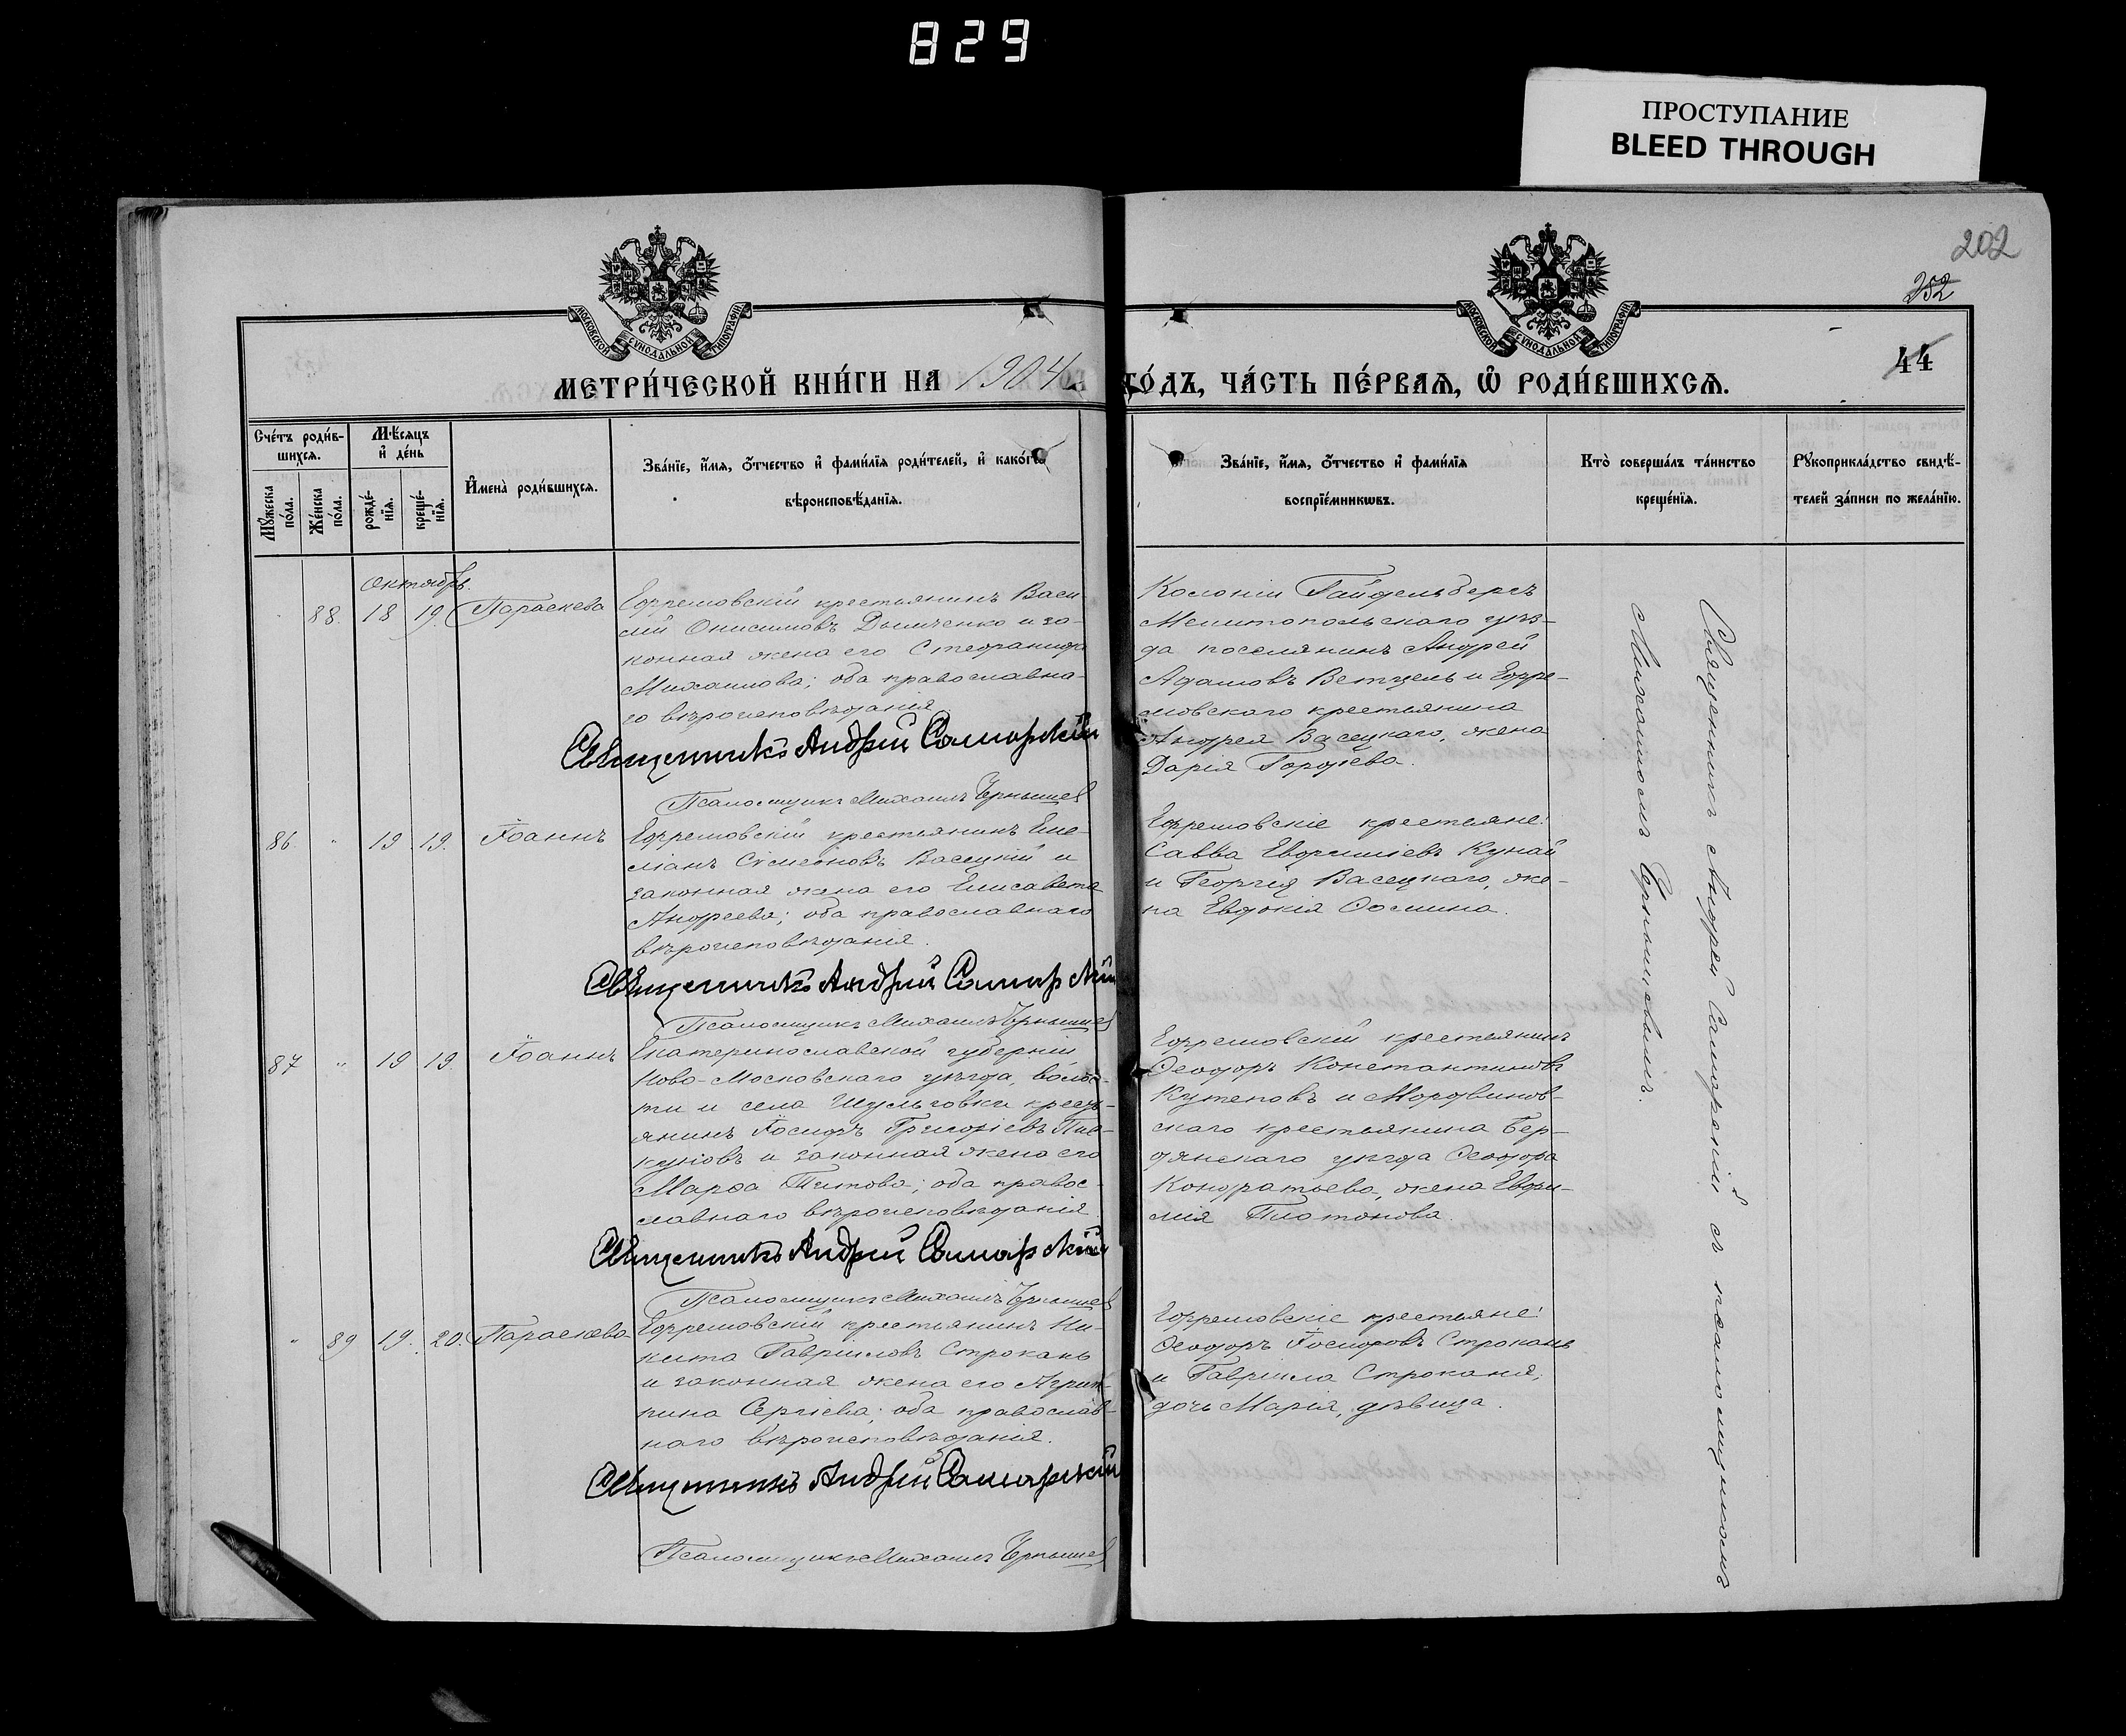 829
ПРОСТУПАНИЕ
BLEED THROUGH
202
252
44
МОСКОВСКОЙ СѴНОДАЛЬНОЙ ТИПОГРАФІИ
МОСКОВСКОЙ СѴНОДАЛЬНОЙ ТИПОГРАФІИ
МЕТРИ́ЧЕСКОЙ КНИ́ГИ НА 1904
ГО́ДЪ, ЧА́СТЬ ПЕ́РВАѦ, Ѿ РОДИ́ВШИХСѦ.
Сче́тъ роди́в-
шихсѧ.
Мѣ́сѧцъ
и҆ де́нь
Мꙋ́жеска по́ла.
Же́нска по́ла.
рожде́-
нїѧ.
креще́-
нїѧ.
И҆мена̀ роди́вшихсѧ.
Зва́нїе, и҆́мѧ, ѻ҆́тчество и҆ фами́лїѧ роди́телей, и҆ како́гѡ
вѣроисповѣ́данїѧ.
Зва́нїе, и҆́мѧ, ѻ҆́тчество и҆ фами́лїѧ
воспрїе́мникѡвъ.
Кто̀ соверша́лъ та́инство
креще́нїѧ.
Рꙋкоприкла́дство свидѣ́-
телей за́писи по жела́нїю.
Октябрь.
88. 18 19. Параскева
Ефремовскій крестьянинъ Васи
лій Онисимовъ Дымченко и за-
конная жена его Стефанида
Михаилова; оба православна-
го вѣроисповѣданія
Священникъ Андрей Самарскій
Псаломщикъ Михаилъ Чернышев
Колоніи Гайдельбергъ
Мелитопольскаго уѣз-
да поселянинъ Андрей
Адамовъ Ветцель и Ефре-
мовскаго крестьянина
Андрея Васецкаго, жена
Дарія Гордіева.
86. " 19 19. Іоаннъ
Ефремовскій крестьянинъ Еме-
ліанъ Сѵмеоновъ Васецкій и
законная жена его Елисавета
Андреева; оба православнаго
вѣроисповѣданія.
Священникъ Андрей Самарскій
Псаломщикъ Михаилъ Чернышев
Ефремовскіе крестьяне:
Савва Евфиміевъ Кунай
и Георгія Васецкаго, же-
на Евдокія Ѳомина.
87 " 19 19. Іоаннъ
Екатеринославской губерніи
Ново-Московскаго уѣзда, волос-
ти и села Шульговки кресть-
янинъ Іосифъ Григоріевъ
и законная жена его
Марфа Титова; оба правос-
лавнаго вѣроисповѣданія
Священникъ Андрей Самарскій
Псаломщикъ Михаилъ Чернышев
Ефремовскій крестьянинъ
Ѳеодоръ Константиновъ
Кутеповъ и Мордвинов-
скаго крестьянина Бер-
дянскаго уѣзда Ѳеодора
Кондратьева, жена Евфи-
мія Платонова.
" 89 19. 20. Параскева
Ефремовскій крестьянинъ Ни-
кита Гавриловъ Строкань
и законная жена его Агрип-
пина Сергіева; оба православ-
наго вѣроисповѣданія.
Священникъ Андрей Самарскій
Псаломщикъ Михаилъ Чернышев
Ефремовскіе крестьяне:
Ѳеодоръ Іосифовъ Строкань
и Гавріила Строканя,
дочь Марія, дѣвица.
Священникъ Андрей Самарскій съ псаломщикомъ
Михаиломъ Чернышевымъ.